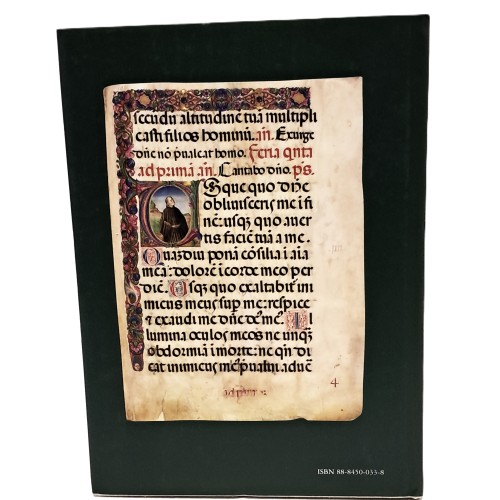 secūdū altitudinē tuā multipli
casti filios hominū. añ. Exurge
dñe nō p̄ualeat homo. Feria qnta
ad primā añ. Cantabo dño. p̄s.
Usque quo dñe
obliuisceris me ī fi
nē: usq̄ quo auer
tis faciē tuā a me.
Quādiu ponā cōsilia ī aīa
mea: dolorē ī corde meo per
diē. Usq̄ quo exaltabit̄ ini
micus meus sup̄ me: respice
& exaudi me dñe de᷒ me᷒. Il
lumina oculos meos ne unq̄
obdormiā ī morte: ne qn̄ di
cat inimicus me᷒ p̄ualui aduē
4
ISBN 88-8450-033-8